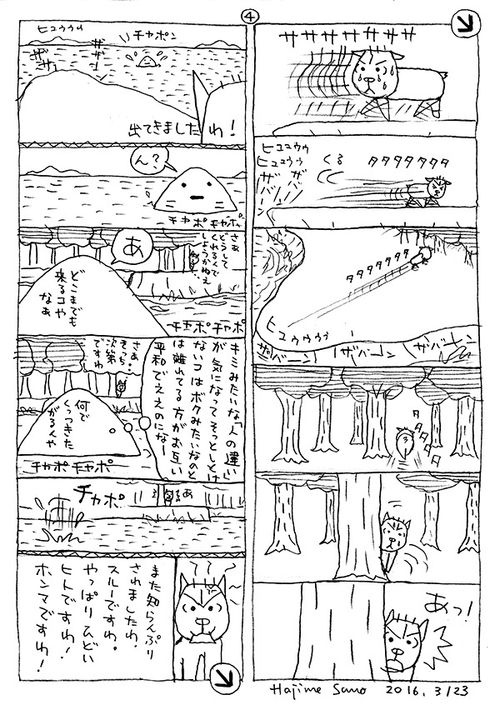 ④
ササササササササ
ヒュウゥゥ
ヒュウゥゥ
ザザ
ザ
くる
タタタタタタタ
タタタタタタタ
ヒュウゥゥゥ
ザバーン
ザバーン
ザバーン
タタタタ
あっ!
ヒュウゥゥ
チャポン
ザザ
ザザ
出てきましたわ!
ん?
チャポチャポ
さあ
どうして
くれるんで
しょうかねえ
あ
どこまでも
来るコや
なぁ
チャポチャポ
キミみたいな「人の違い」
が気になってそっとしとけ
ないコはボクみたいなのと
は離れてる方がお互い
平和でええのになー
さあ!
きっちり
次第
ですわ
何で
くっつきた
がるんや
チャポチャポ
チャポ
あ
また知らんぷり
されましたわ!
スルーですわ。
やっぱりひどい
ヒトですわ!
ホンマですわ!
Hajime Sano 2016.3/23